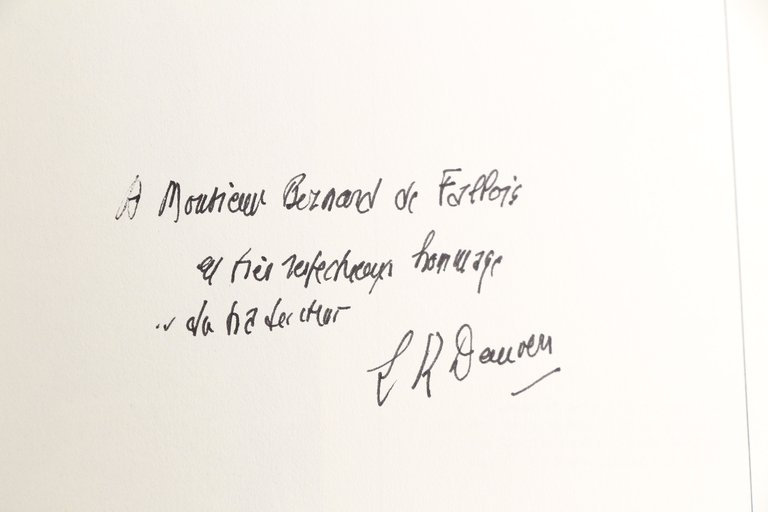 A Monsieur Bernard de Fallois
très respectueux hommage
du traducteur
L R Dauven